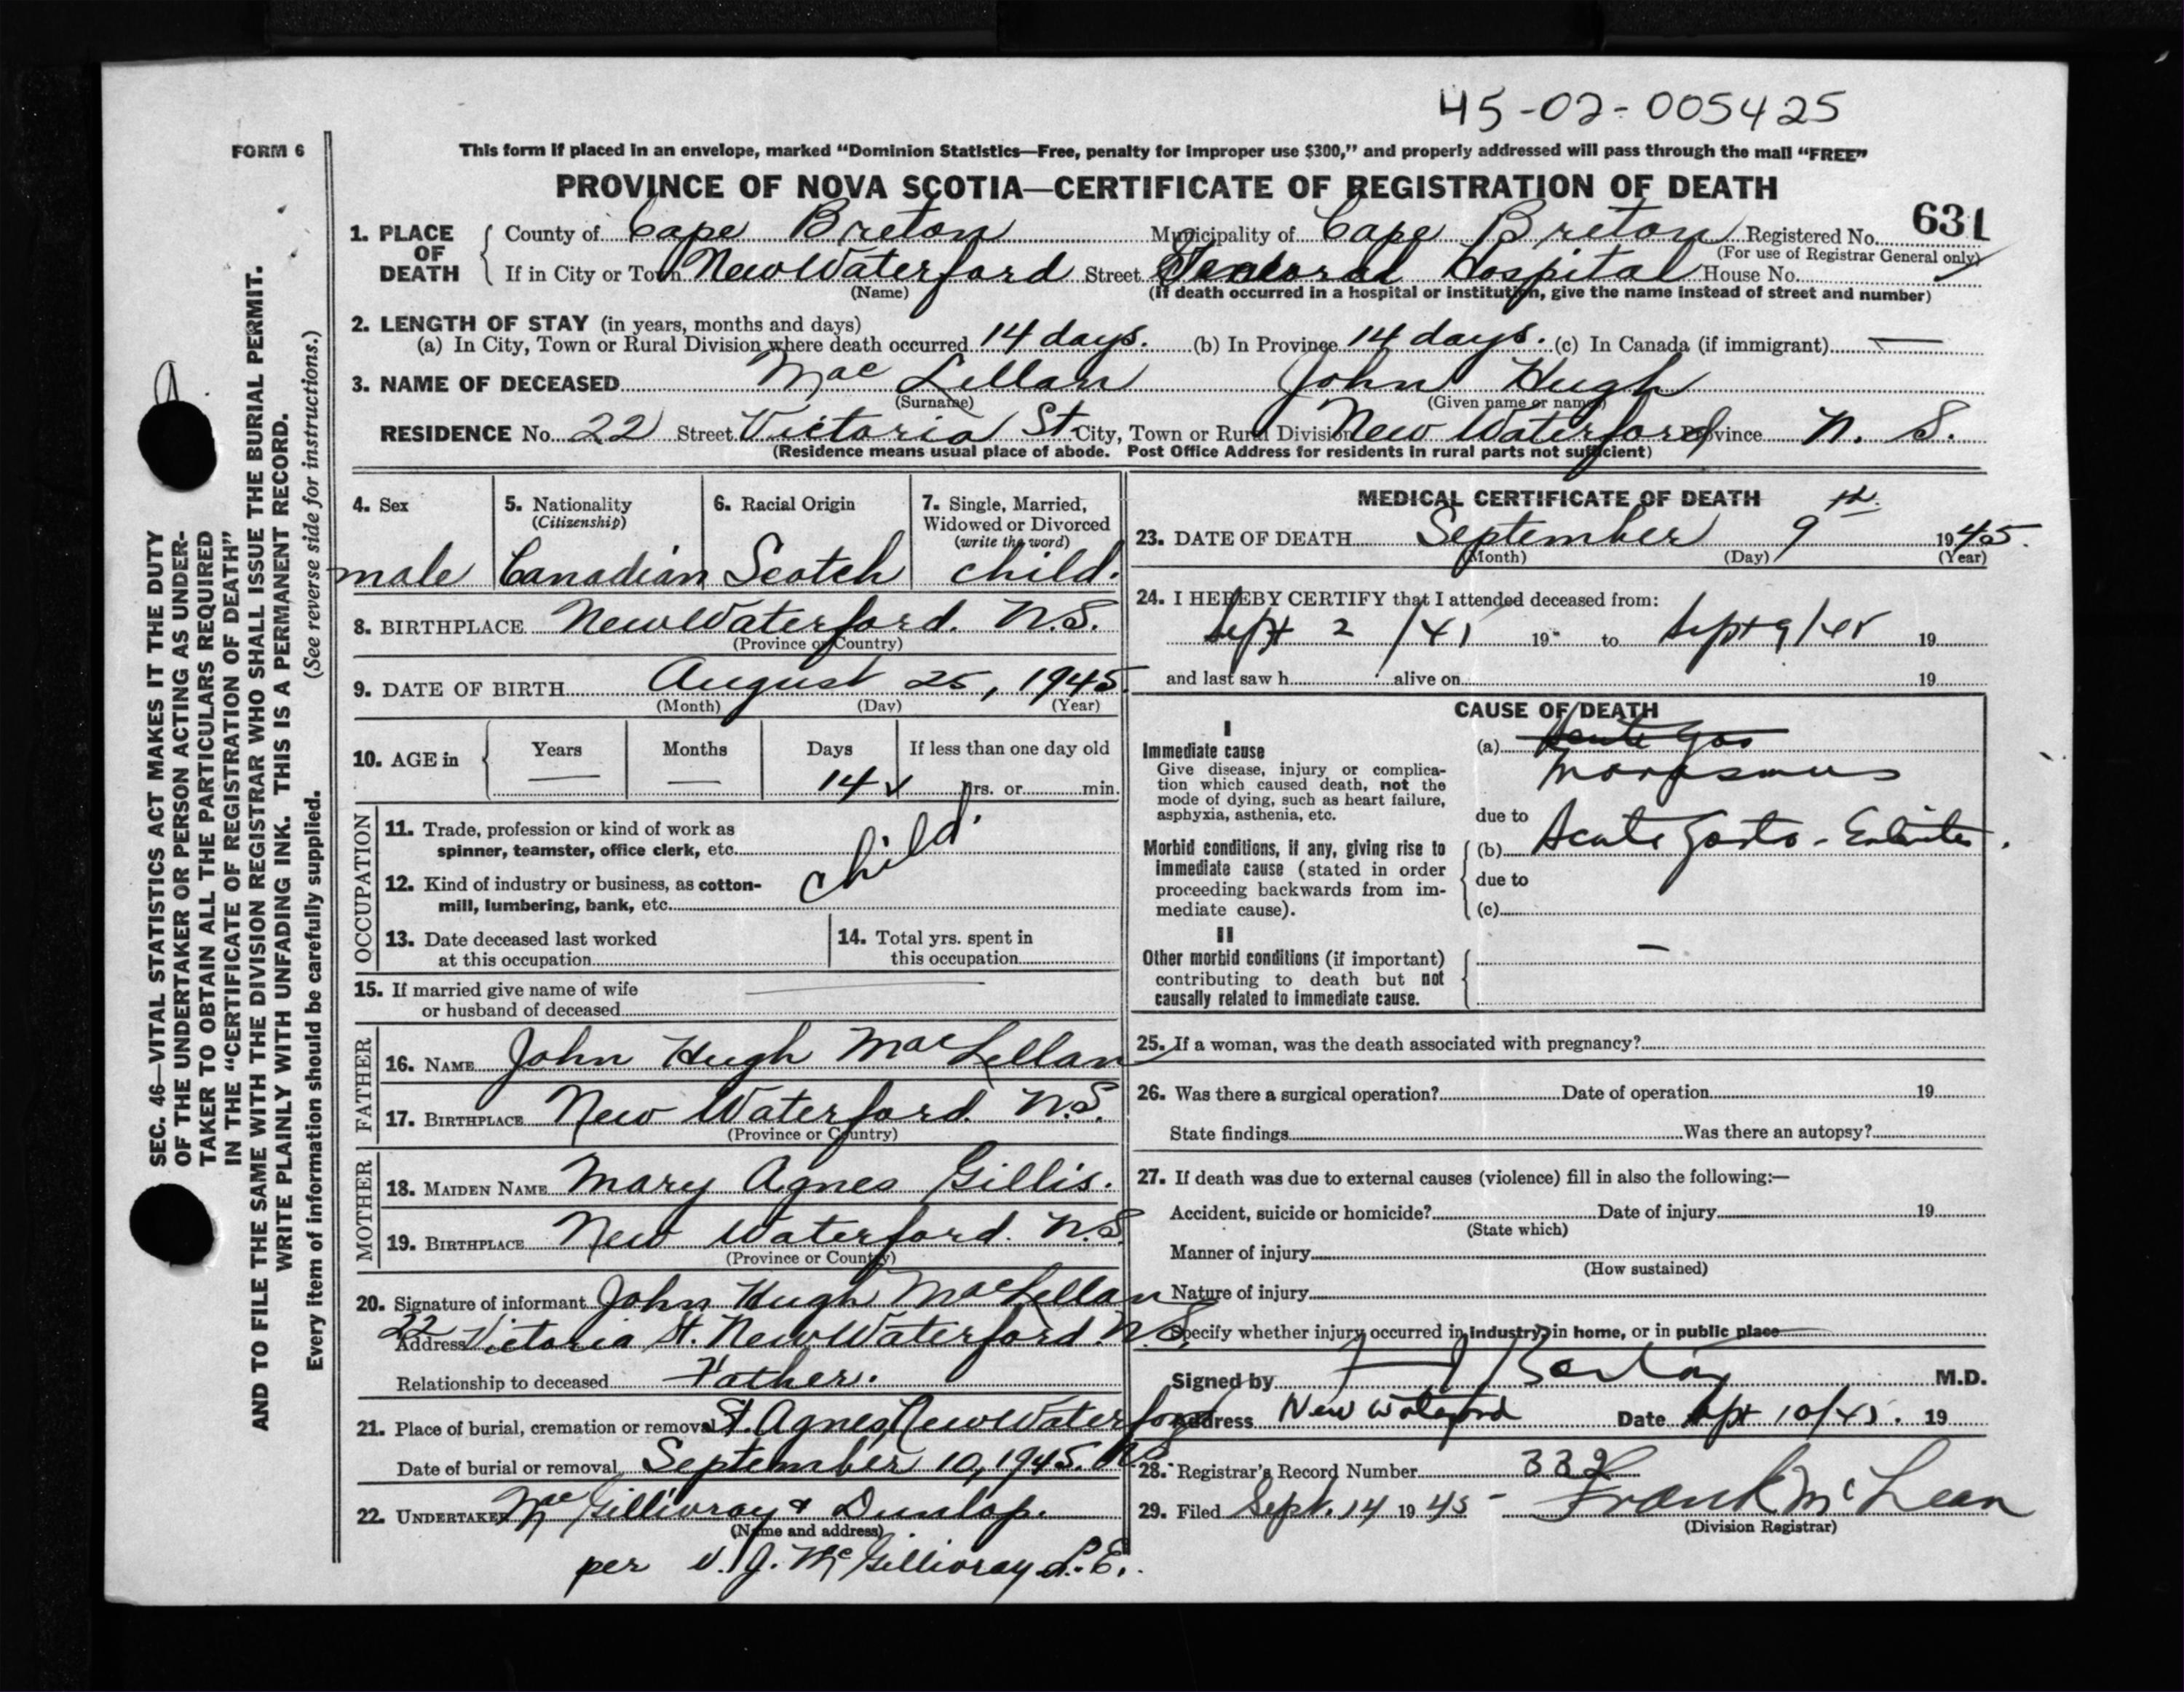 45-02-005425
FORM 6
This form if placed in an envelope, marked "Dominion Statistics—Free, penalty for improper use $300," and properly addressed will pass through the mail "FREE"
PROVINCE OF NOVA SCOTIA—CERTIFICATE OF REGISTRATION OF DEATH
631
1. PLACE OF DEATH { County of Cape Breton Municipality of Cape Breton Registered No.
(For use of Registrar General only)
If in City or Town New Waterford Street General Hospital House No.
(Name) (If death occurred in a hospital or institution, give the name instead of street and number)
2. LENGTH OF STAY (in years, months and days)
(a) In City, Town or Rural Division where death occurred 14 days. (b) In Province 14 days. (c) In Canada (if immigrant) —
3. NAME OF DECEASED Mac Lellan John Hugh
(Surname) (Given name or names)
RESIDENCE No. 22 Street Victoria St. City, Town or Rural Division New Waterford Province N. S.
(Residence means usual place of abode. Post Office Address for residents in rural parts not sufficient)
4. Sex
male
5. Nationality
(Citizenship)
Canadian
6. Racial Origin
Scotch
7. Single, Married,
Widowed or Divorced
(write the word)
child.
8. BIRTHPLACE New Waterford. N.S.
(Province or Country)
9. DATE OF BIRTH August 25, 1945
(Month) (Day) (Year)
10. AGE in { Years Months Days If less than one day old
— — 14 ✓ hrs. or min.
OCCUPATION
11. Trade, profession or kind of work as
spinner, teamster, office clerk, etc.
child
12. Kind of industry or business, as cotton-
mill, lumbering, bank, etc.
13. Date deceased last worked
at this occupation
14. Total yrs. spent in
this occupation
15. If married give name of wife
or husband of deceased
FATHER
16. NAME John Hugh MacLellan
17. BIRTHPLACE New Waterford. N.S.
(Province or Country)
MOTHER
18. MAIDEN NAME Mary Agnes Gillis.
19. BIRTHPLACE New Waterford. N.S.
(Province or Country)
20. Signature of informant John Hugh MacLellan
Address 22 Victoria St. New Waterford N.S.
Relationship to deceased Father.
21. Place of burial, cremation or removal St. Agnes, New Waterford
N.S.
Date of burial or removal September 10, 1945.
22. UNDERTAKER McGillivray & Dunlop.
(Name and address)
per J. McGillivray L.E.
MEDICAL CERTIFICATE OF DEATH
23. DATE OF DEATH September 9th 1945.
(Month) (Day) (Year)
24. I HEREBY CERTIFY that I attended deceased from:
Sept 2 /45 19 to Sept 9/45 19
and last saw h alive on 19
CAUSE OF DEATH
I
Immediate cause
Give disease, injury or complica-
tion which caused death, not the
mode of dying, such as heart failure,
asphyxia, asthenia, etc.
(a) Acute Gas
Marasmus
due to
Morbid conditions, if any, giving rise to
immediate cause (stated in order
proceeding backwards from im-
mediate cause).
(b) Acute Gastro-Enteritis.
due to
(c)
II
Other morbid conditions (if important)
contributing to death but not
causally related to immediate cause.
—
25. If a woman, was the death associated with pregnancy?
26. Was there a surgical operation? Date of operation 19
State findings Was there an autopsy?
27. If death was due to external causes (violence) fill in also the following:—
Accident, suicide or homicide? Date of injury 19
(State which)
Manner of injury
(How sustained)
Nature of injury
Specify whether injury occurred in industry, in home, or in public place
Signed by M.D.
Address New Waterford Date Sept 10/45. 19
28. Registrar's Record Number 332
29. Filed Sept. 14 1945 - Frank McLean
(Division Registrar)
SEC. 46—VITAL STATISTICS ACT MAKES IT THE DUTY
OF THE UNDERTAKER OR PERSON ACTING AS UNDER-
TAKER TO OBTAIN ALL THE PARTICULARS REQUIRED
IN THE "CERTIFICATE OF REGISTRATION OF DEATH"
AND TO FILE THE SAME WITH THE DIVISION REGISTRAR WHO SHALL ISSUE THE BURIAL PERMIT.
WRITE PLAINLY WITH UNFADING INK. THIS IS A PERMANENT RECORD.
Every item of information should be carefully supplied. (See reverse side for instructions.)